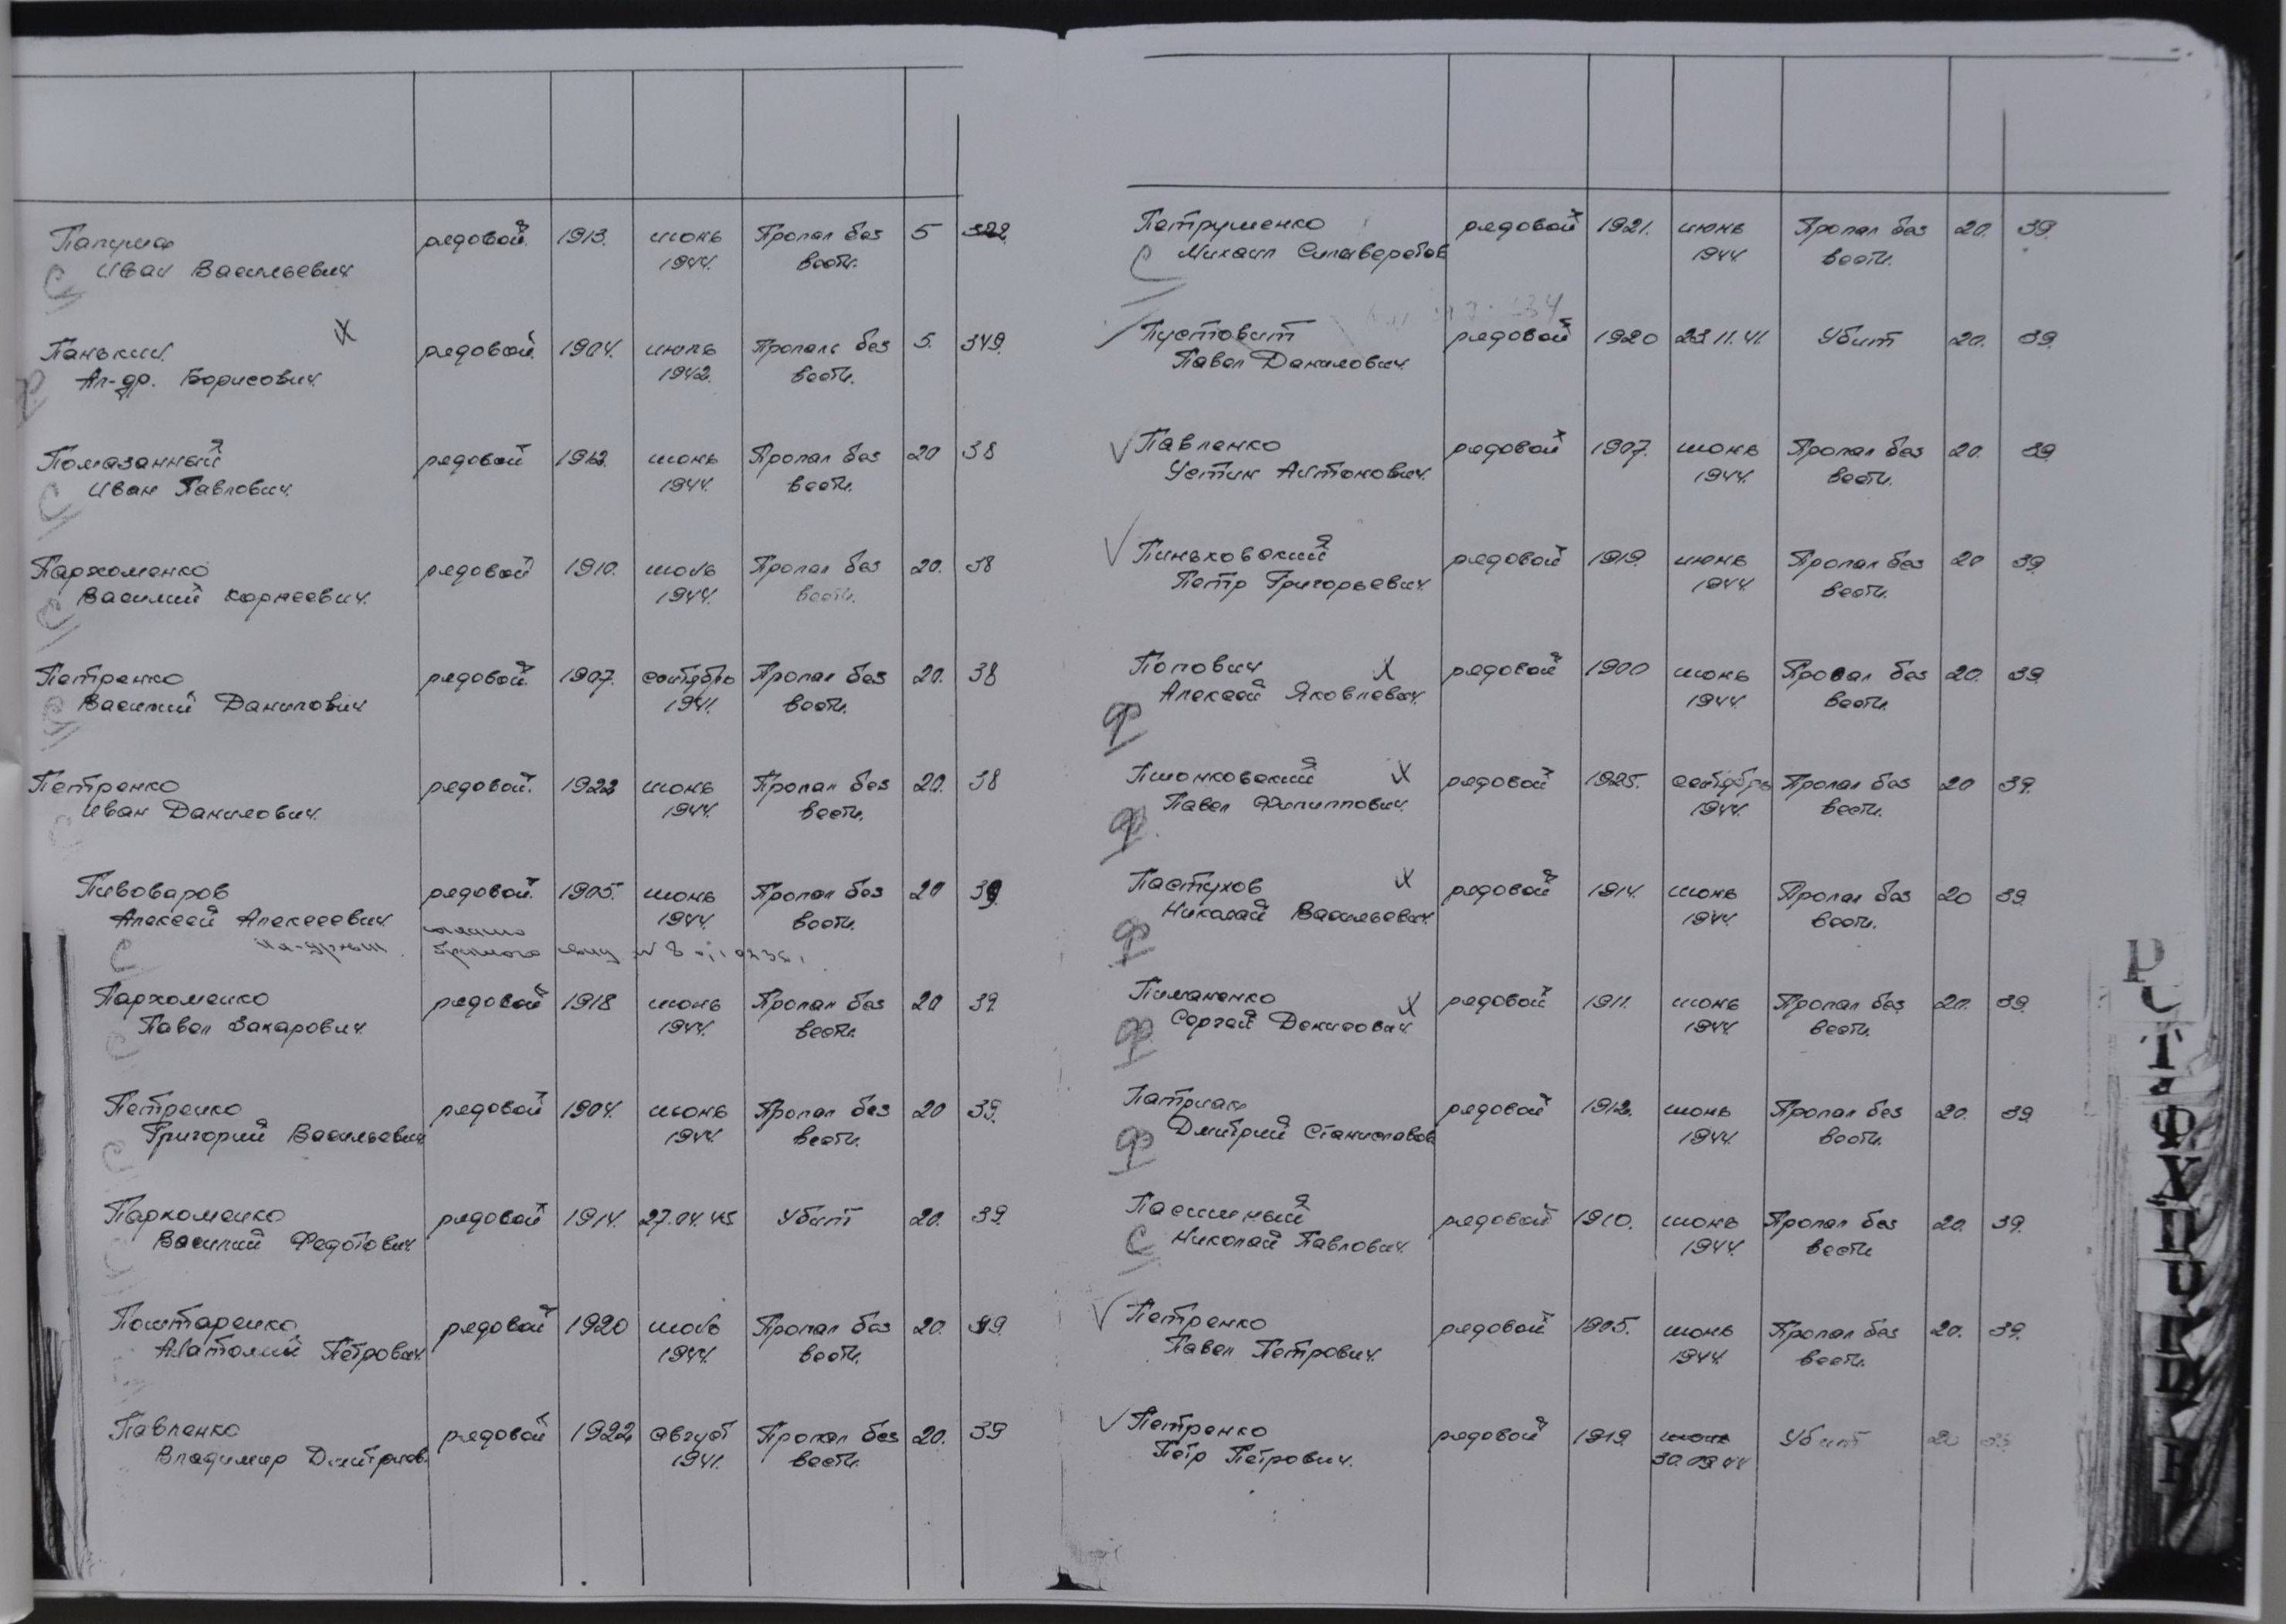 Папуша рядовой 1913. июнь Пропал без 5 322
Иван Васильевич 1944. вести.
Панькин рядовой 1904. июль Пропал без 5. 349.
Ал-др. Борисович 1942. вести.
Помазанный рядовой 1912. июнь Пропал без 20 38
Иван Павлович. 1944. вести.
Пархоменко рядовой 1910. июнь Пропал без 20. 38
Василий Корнеевич. 1944. вести.
Петренко рядовой 1907. сентябрь Пропал без 20. 38
Василий Данилович 1941. вести.
Петренко рядовой. 1922 июнь Пропал без 20. 38
Иван Данилович. 1944. вести.
Пивоваров рядовой. 1905. июнь Пропал без 20 39.
Алексей Алексеевич 1944. вести.
Пархоменко рядовой 1918 июнь Пропал без 20 39.
Павел Захарович. 1944. вести.
Петренко рядовой 1904. июнь Пропал без 20 39.
Григорий Васильевич 1944 вести.
Пархоменко рядовой 1914. 27.04.45 Убит 20. 39.
Василий Федотович
Поштаренко рядовой 1920 июнь Пропал без 20. 39.
Анатолий Петрович 1944. вести.
Павленко рядовой 1922 август Пропал без 20. 39
Владимир Дмитриев. 1941. вести.
Петрушенко рядовой 1921. июнь Пропал без 20. 39.
Михаил 1944 вести.
Пустовит рядовой 1920 23.11.41. Убит 20. 39.
Павел Данилович
Павленко рядовой 1907. июнь Пропал без 20. 39
Устин Антонович. 1944. вести.
Пиньковский рядовой 1919. июнь Пропал без 20 39.
Петр Григорьевич. 1944. вести.
Попович рядовой 1900 июнь Пропал без 20. 39.
Алексей Яковлевич. 1944. вести.
Пшонковский рядовой 1925. сентябрь Пропал без 20 39.
Павел Филиппович. 1944. вести.
Пастухов рядовой 1914. июнь Пропал без 20 39
Николай Васильевич. 1944. вести.
Пиманенко рядовой 1911. июнь Пропал без 20. 39.
Сергей Денисович. 1944. вести.
Патриак рядовой 1912. июнь Пропал без 20. 39
Дмитрий Станиславов 1944. вести.
Пасшный рядовой 1910. июнь Пропал без 20. 39.
Николай Павлович. 1944. вести
Петренко рядовой 1905. июнь Пропал без 20. 39.
Павел Петрович. 1944. вести.
Петренко рядовой 1919. июнь Убит 20 39
Петр Петрович. 30.09.44